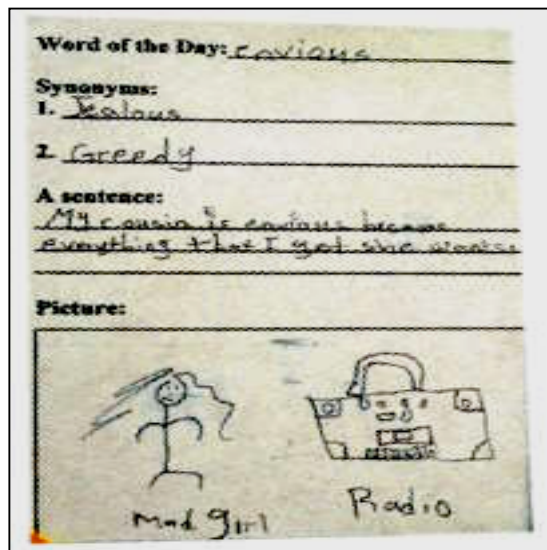 Word of the Day: envious
Synonyms:
1. Jealous
2. Greedy
A sentence:
My cousin is envious because
everything that I got she wants
Picture:
Mad girl
Radio